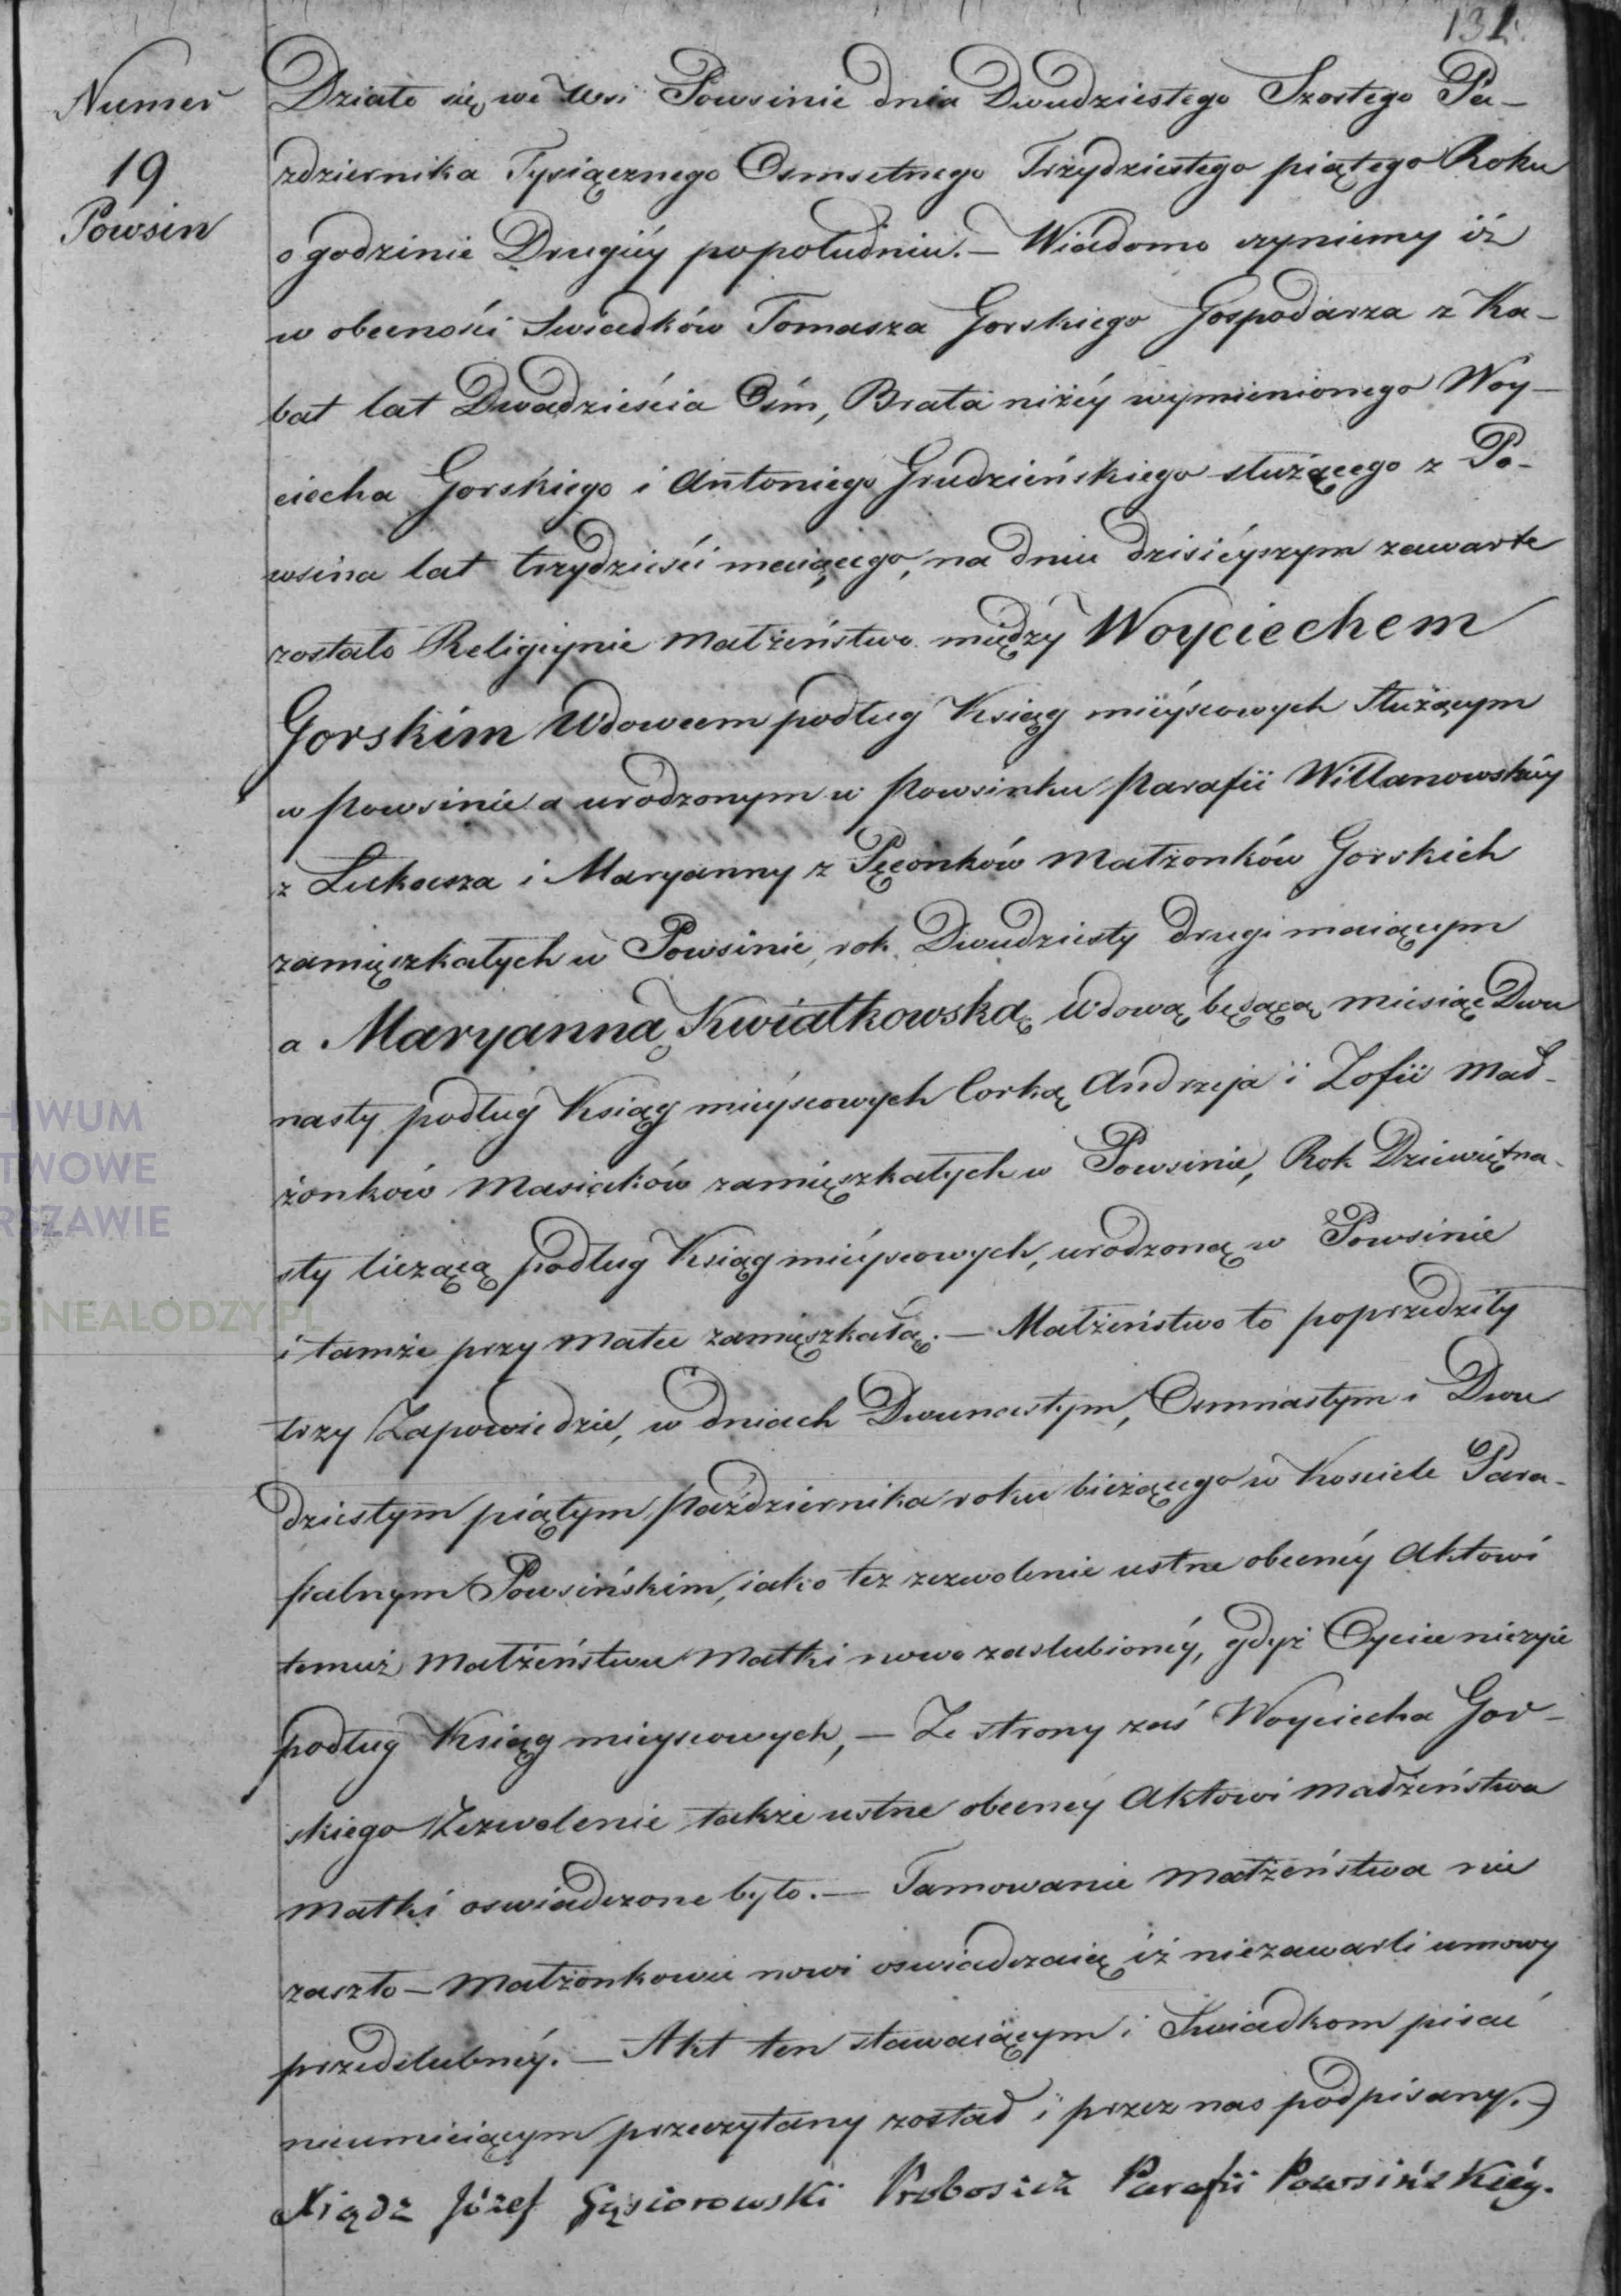 131.
Numer
19
Powsin
Działo się we Wsi Powsinie dnia Dwudziestego Szostego Pa-
zdziernika Tysiącznego Osmsetnego Trzydziestego piątego Roku
o godzinie Drugiéy popołudniu. — Wiadomo czyniemy iż
w obecności Swiadków Tomasza Gorskiego Gospodarza z Ka-
bat lat Dwadzieścia Ośm, Brata niżéy wymienionego Woy-
ciecha Gorskiego i Antoniego Grudzieńskiego służącego z Po-
wsina lat trzydzieści maiącego, na dniu dzisiéyszym zawarte
zostało Religiynie Małżeństwo między Woyciechem
Gorskim Wdowcem podług Ksiąg miéyscowych Służącym
w Powsinie a urodzonym w Powsinku Parafii Willanowskiéy
z Łukasza i Maryanny z Pęconków Małżonków Gorskich
zamięszkałych w Powsinie, rok Dwudziesty drugi maiącym
a Maryanną Kwiatkowską Wdową będącą miesiąc Dwu
nasty podług Ksiąg miéyscowych Corką Andrzeja i Zofii Mał-
żonków Masiaków zamięszkałych w Powsinie, Rok Dziewiętna-
sty liczącą podług Ksiąg miéyscowych, urodzoną w Powsinie
i tamże przy Matce zamięszkałą. — Małżeństwo to poprzedziły
trzy Zapowiedzie, w dniach Dwunastym, Osmnastym i Dwu
dziestym piątym Października roku bieżącego w Kosciele Para-
fialnym Powsińskim, iako też zezwolenie ustne obecnéy Aktowi
temuż Małżeństwu Matki nowo zaslubionéy, gdyż Oyciec nieżyie
podług Ksiąg mieyscowych, — Ze strony zaś Woyciecha Gor-
skiego Zezwolenie także ustne obecnéy Aktowi madżeństwa
Matki oswiadczone było. — Tamowanie małżeństwa nie
zaszło — Małżonkowie nowi oswiadczaią iż niezawarli umowy
przedslubnéy. — Akt ten stawaiącym i Swiadkom pisać
nieumieiącym przeczytany został i przez nas podpisany.
Xiądz Józef Gąsiorowski Proboszcz Parafii Powsińskiéy.
HIWUM
TWOWE
RSZAWIE
GENEALODZY.PL